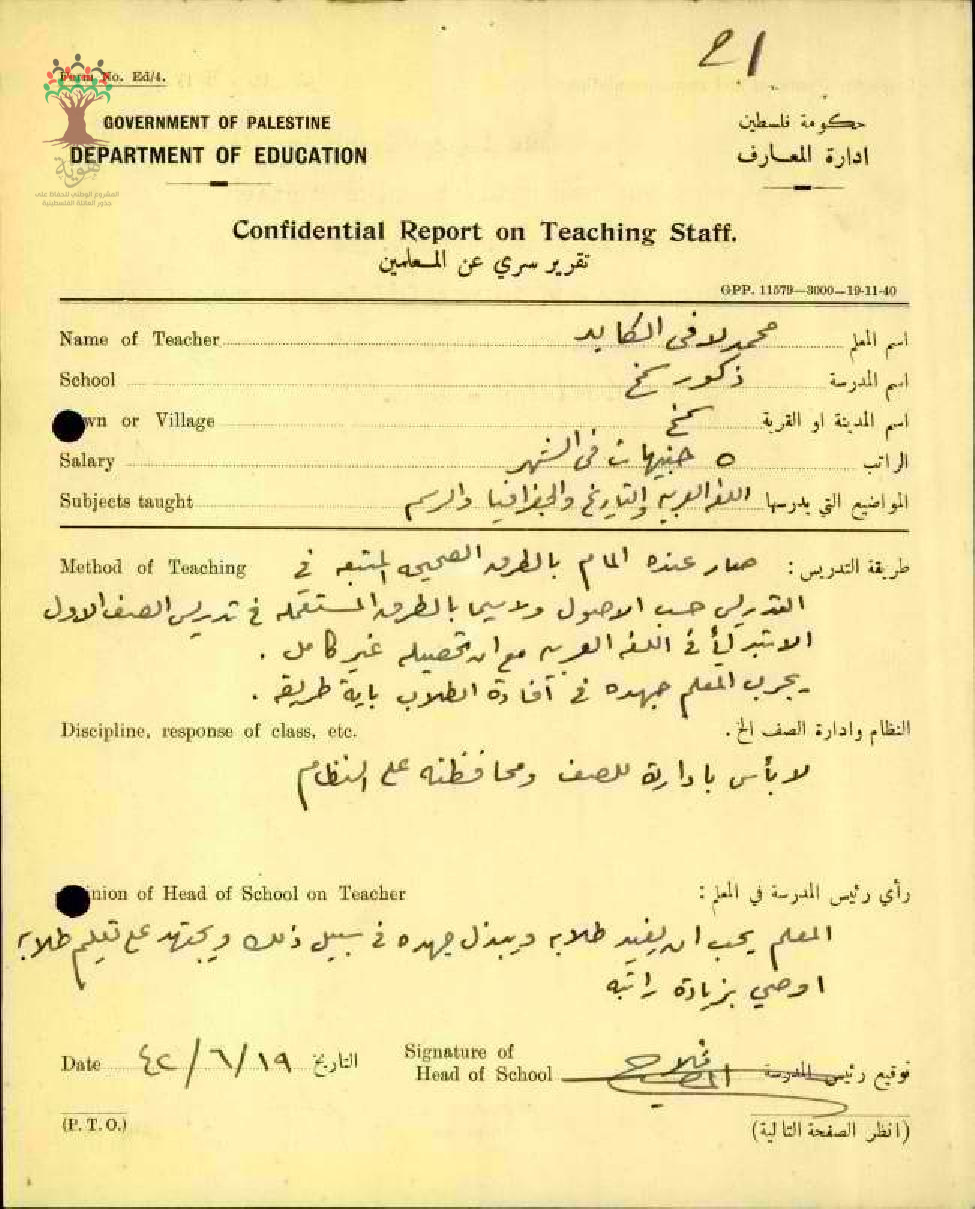 21
Form No. Ed/4.
هوية
المشروع الوطني للحفاظ على
جذور العائلة الفلسطينية
GOVERNMENT OF PALESTINE
حكومة فلسطين
DEPARTMENT OF EDUCATION
ادارة المعارف
Confidential Report on Teaching Staff.
تقرير سري عن المعلمين
GPP. 11579—3000—19-11-40
Name of Teacher محمد لافي الكايد اسم المعلم
School ذكور سمخ اسم المدرسة
wn or Village سمخ اسم المدينة او القرية
Salary ٥ جنيهات في الشهر الراتب
Subjects taught اللغة العربية والتاريخ والجغرافيا والرسم المواضيع التي يدرسها
Method of Teaching صار عنده المام بالطرق الصحيحه المتبعه في طريقة التدريس :
التدريس حسب الاصول ولا سيما بالطرق المستعمله في تدريس الصف الاول
الابتدائي في اللغه العربيه مع ان تحصيله غير كامل .
يجرب المعلم جهده في افادة الطلاب باية طريقه .
Discipline, response of class, etc. النظام وادارة الصف الخ .
لا بأس بادارته للصف ومحافظته على النظام
nion of Head of School on Teacher رأي رئيس المدرسة في المعلم :
المعلم يحب ان يفيد طلابه ويبذل جهده في سبيل ذلك ويجتهد على تعليم طلابه
اوصي بزيادة راتبه
Date ١٩/٦/٤٢ التاريخ
Signature of
Head of School توقيع رئيس المدرسة
(P. T. O.) (انظر الصفحة التالية)